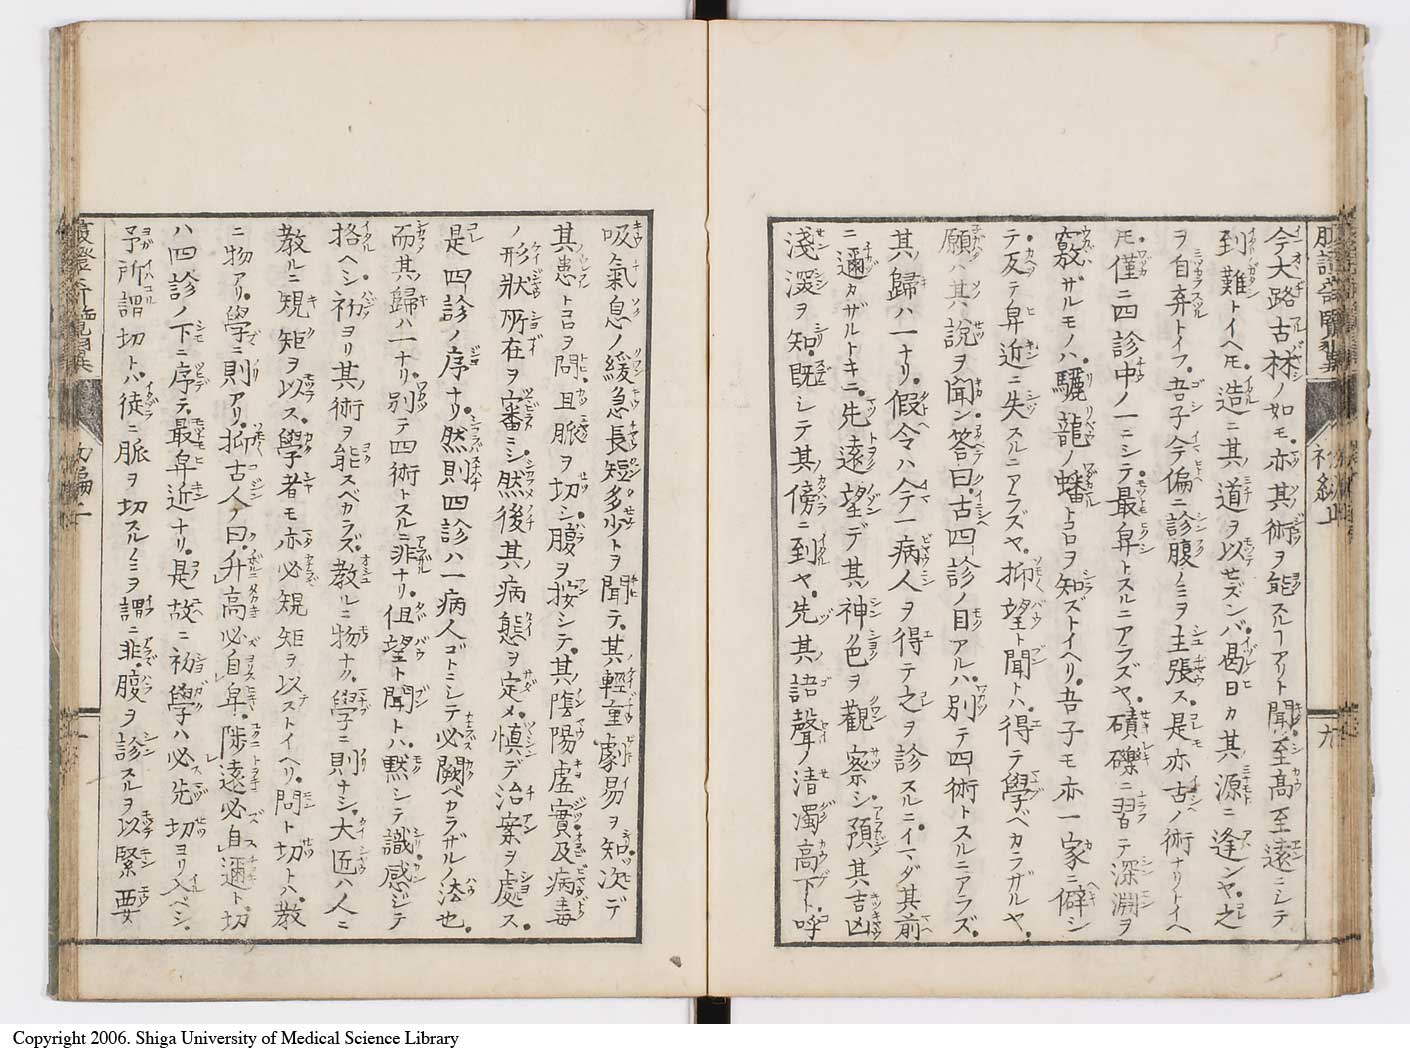 今大路古林ノ如モ亦其術ヲ能スルヿアリト聞至高至遠ニシテ
到難トイヘ𪜈造ニ其道ヲ以セズンバ曷日カ其源ニ逢ンヤ之
ヲ自弃トイフ吾子今偏ニ診腹ノミヲ主張ス是亦古ノ術ナリトイヘ
𪜈僅ニ四診中ノ一ニシテ最卑トスルニアラズヤ磧礫ニ習テ深淵ヲ
窺ザルモノハ驪龍ノ蟠トコロヲ知ズトイヘリ吾子モ亦一家ニ僻シ
テ反テ卑近ニ失スルニアラズヤ抑望ト聞トハ得テ學ベカラザルヤ
願ハ其說ヲ聞ン答曰古四診ノ目アルハ別テ四術トスルニアラズ
其歸ハ一ナリ假令ハ今一病人ヲ得テ之ヲ診スルニイマダ其前
ニ邇カザルトキニ先遠望デ其神色ヲ觀察シ預其吉凶
淺深ヲ知既シテ其傍ニ到ヤ先其語聲ノ清濁高下ト呼
吸氣息ノ緩急長短多少トヲ聞テ其輕重劇易ヲ知次デ
其患トコロヲ問且脈ヲ切シ腹ヲ按シテ其陰陽虛實及病毒
ノ形狀所在ヲ審ニシ然後其病態ヲ定メ慎デ治案ヲ處ス
是四診ノ序ナリ然則四診ハ一病人ゴトニシテ必闕ベカラザルノ法也
而其歸ハ一ナリ別テ四術トスルニ非ナリ但望ト聞トハ黙シテ識感ジテ
格ヘシ初ヨリ其術ヲ能スベカラズ教ルニ物ナク學ニ則ナシ大匠ハ人ニ
教ルニ規矩ヲ以ス學者モ亦必規矩ヲ以ストイヘリ問ト切トハ教
ニ物アリ學ニ則アリ抑古人ノ曰升高必自卑陟遠必自邇ト切
ハ四診ノ下ニ序テ最卑近ナリ是故ニ初學ハ必先切ヨリ入ベシ
予所謂切トハ徒ニ脈ヲ切スルノミヲ謂ニ非腹ヲ診スルヲ以緊要